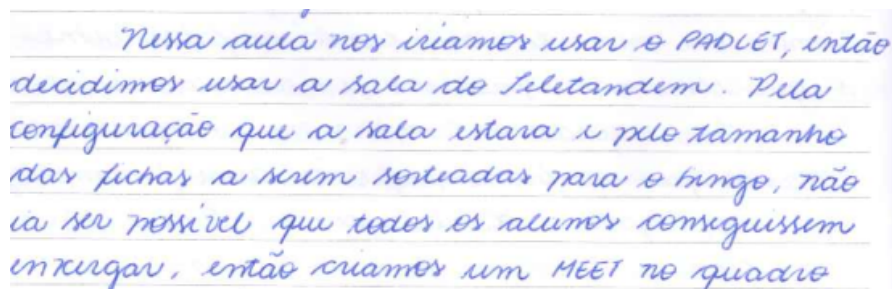 Nessa aula nos iriamos usar o PADLET, então
decidimos usar a sala do Teletandem. Pela
configuração que a sala estara e pelo tamanho
das fichas a serem sorteadas para o bingo, não
ia ser possível que todos os alunos conseguissem
enxergar, então criamos um MEET no quadro